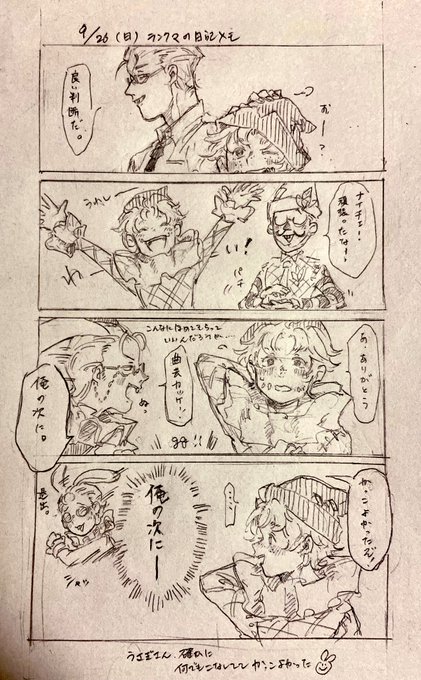 9/26(日)ランクマの日記メモ
おー?
良い判断だ。
ナイチェー!
頑張ったなー!
パチ
わーい!
うれし
あ、ありがとう
こんなにほめてもらって
いいんだろうか…
曲芸カッケー!
ぬっ
俺の次に。
かっこよかったぞ!
……
俺の次にー
退出。
うさぎさん、確かに
何でもこなしてて かっこよかった